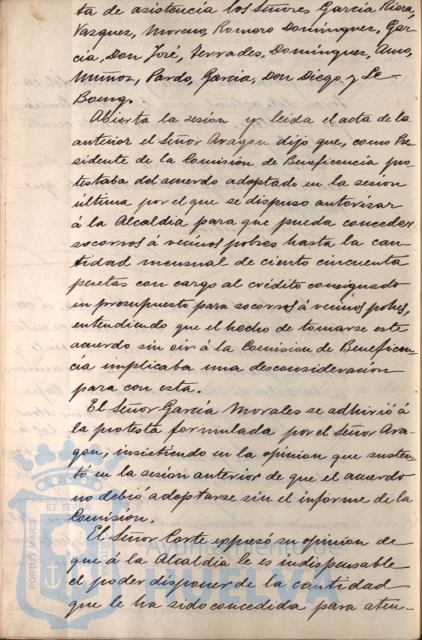 ta de asistencia los Señores García Riera,
Vazquez, Moreno, Romero Dominguez, Gar-
cía, Don José, Terrades, Dominguez, Amo,
Muñoz, Pardo, García, Don Diego y Le
Bourg.
Abierta la sesion y leida el acta de la
anterior el Señor Aragon dijo que, como Pre
sidente de la Comisión de Beneficencia pro-
testaba del acuerdo adoptado en la sesion
última por el que se dispuso autorizar
á la Alcaldia para que pueda conceder
socorros á vecinos pobres hasta la can-
tidad mensual de ciento cincuenta
pesetas con cargo al crédito consignado
en presupuesto para socorros á vecinos pobres,
entendiendo que el hecho de tomarse este
acuerdo sin oir á la Comision de Beneficen-
cia implicaba una desconsideracion
para con esta.
El Señor García Morales se adhirió á
la protesta formulada por el Señor Ara-
gon, insistiendo en la opinion que susten-
tó en la sesion anterior de que el acuerdo
no debió adoptarse sin el informe de la
Comision.
El Señor Corte expresó su opinion de
que á la Alcaldia le es indispensable
el poder disponer de la cantidad
que le ha sido concedida para aten-
ET TERRA
PORTUS MARIS
Ayuntamiento de
HUELVA